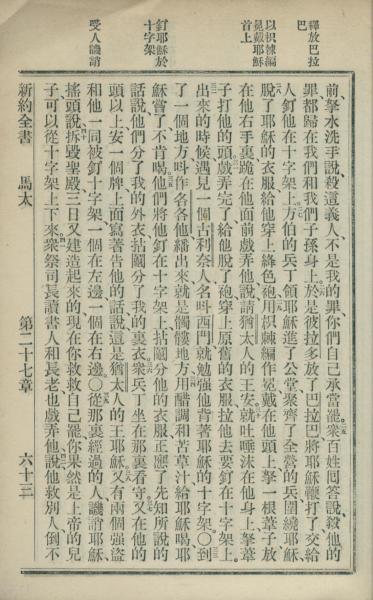 釋放巴拉
巴
以棘編
冕戴耶穌
首上
釘耶穌於
十字架
受人譏誚
前拏水洗手說殺這義人不是我的罪你們自己承當罷衆百姓囘答說殺他的
罪都歸在我們和我們子孫身上於是彼拉多放了巴拉巴將耶穌鞭打了交給
人釘他在十字架上方伯的兵丁領耶穌進了公堂聚齊了全營的兵圍繞耶穌
脫了耶穌的衣服給他穿上絳色袍用棘編作冕戴在他頭上拏一根葦子放
在他右手裏跪在他面前戲弄他說請猶太人的王安就吐唾沫在他身上拏葦
子打他的頭戲弄完了給他脫了袍穿上原舊的衣服拉他去要釘在十字架上
出來的時候遇見一個古利奈人名呌西門就勉强他背著耶穌的十字架〇到
了一個地方呌作各各他繙出來就是髑髏地方用醋調和苦草汁給耶穌喝耶
穌嘗了不肯喝他們將他釘在十字架上拈鬮分他的衣服正應了先知所說的
話說他們分了我的外衣拈鬮分了我的裏衣衆兵丁坐在那裏看守又在他的
頭以上安一個牌上面寫著告他的話說這是猶太人的王耶穌又有兩個强盜
和他一同被釘十字架一個在左邊一個在右邊〇從那裏經過的人譏誚耶穌
搖頭說拆毀聖殿三日又建造起來的現在你救救自己罷你果然是上帝的兒
子可以從十字架上下來衆祭司長讀書人和長老也戲弄他說他救別人倒不
新約全書 馬太 第二十七章 六十三